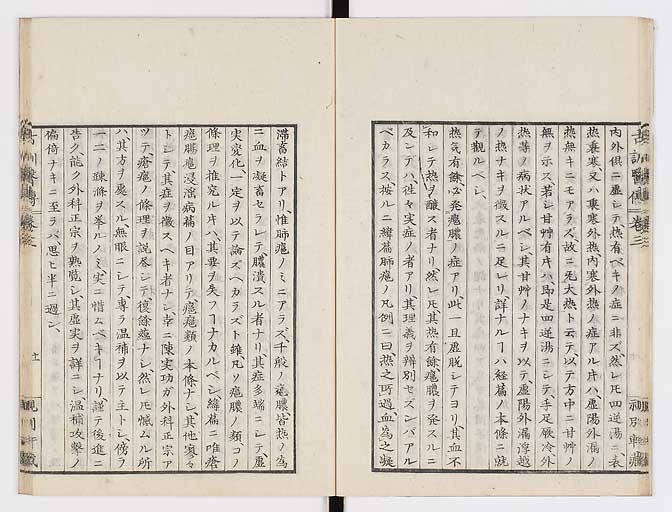 内外俱ニ虚シテ熱有ベキノ症ニ非ズ然レ𪜈四逆湯ニ表
熱裏寒又ハ裏寒外熱内寒外熱ノ症アル片ハ虚陽外漏ノ
熱無キニモアラズ故ニ无大熱ト云テ以テ方中ニ甘艸ノ
無ヲ示ス若シ甘艸有片ハ即是四逆湯ニシテ手足厥冷外
熱等ノ病状アルベシ其甘艸ノナキヲ以テ虚陽外漏浮越
ノ熱ナキヲ徴スルニ足レリ詳ナルヿハ経篇ノ本條ニ就
テ観ルベシ
熱気有餘必発瘡膿ノ症アリ此一旦虚脱シテヨリ其血不
和シテ熱ヲ醸ス者ナリ然レ𪜈其熱有餘瘡膿ヲ発スルニ
及ンテハ往々実症ノ者アリ其理義ヲ辨別セズンバアル
ベカラス按ルニ緯篇肺瘡ノ凡例ニ曰熱之所過血為之凝
滞蓄結トアリ惟肺瘡ノミニアラズ千般ノ瘡膿皆熱ノ為
ニ血ヲ凝畜セラレテ膿潰スル者ナリ其症多端ニシテ虚
実変化一定ヲ以テ論ズベカラズト雖凡ソ瘡膿ノ類コノ
條理ヲ推究ル片ハ其要ヲ失フヿナカルベシ緯篇ニ唯瘡
瘡腸瘡浸淫病篇ノ目アリテ瘡瘡類ノ本條ナシ其他寥々
トシテ其症ヲ徴スベキ者ナシ幸ニ陳実功ガ外科正宗ア
ツテ瘡瘡ノ條理ヲ説尽シテ復餘蘊ナシ然レ𪜈慨ムル所
ハ其方ヲ処スル無眼ニシテ専ラ温補ヲ以テ主トシ傍ラ
一二ノ疎滌ヲ挙ルノミ実ニ惜ムベキヿナリ謹テ後進ニ
告ク能ク外科正宗ヲ熟覧シ其虚実ヲ詳ニシ温補攻撃ノ
偏倚ナキニ至ラバ思ヒ半ニ過ン